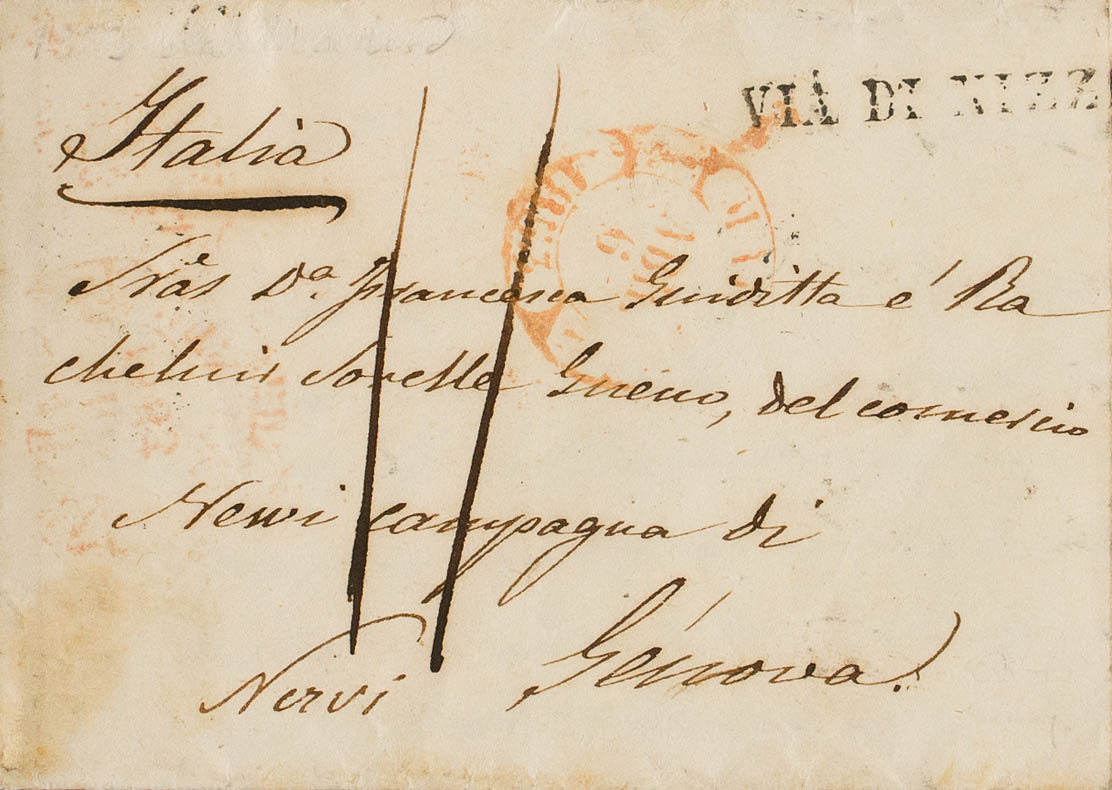 VIÀ DI NIZZ
Italia
Sras Da. Francesca Giuditta é Ra
chelini Sorelle Gueno, del comercio
Nervi campagna di
Génova.
Nervi